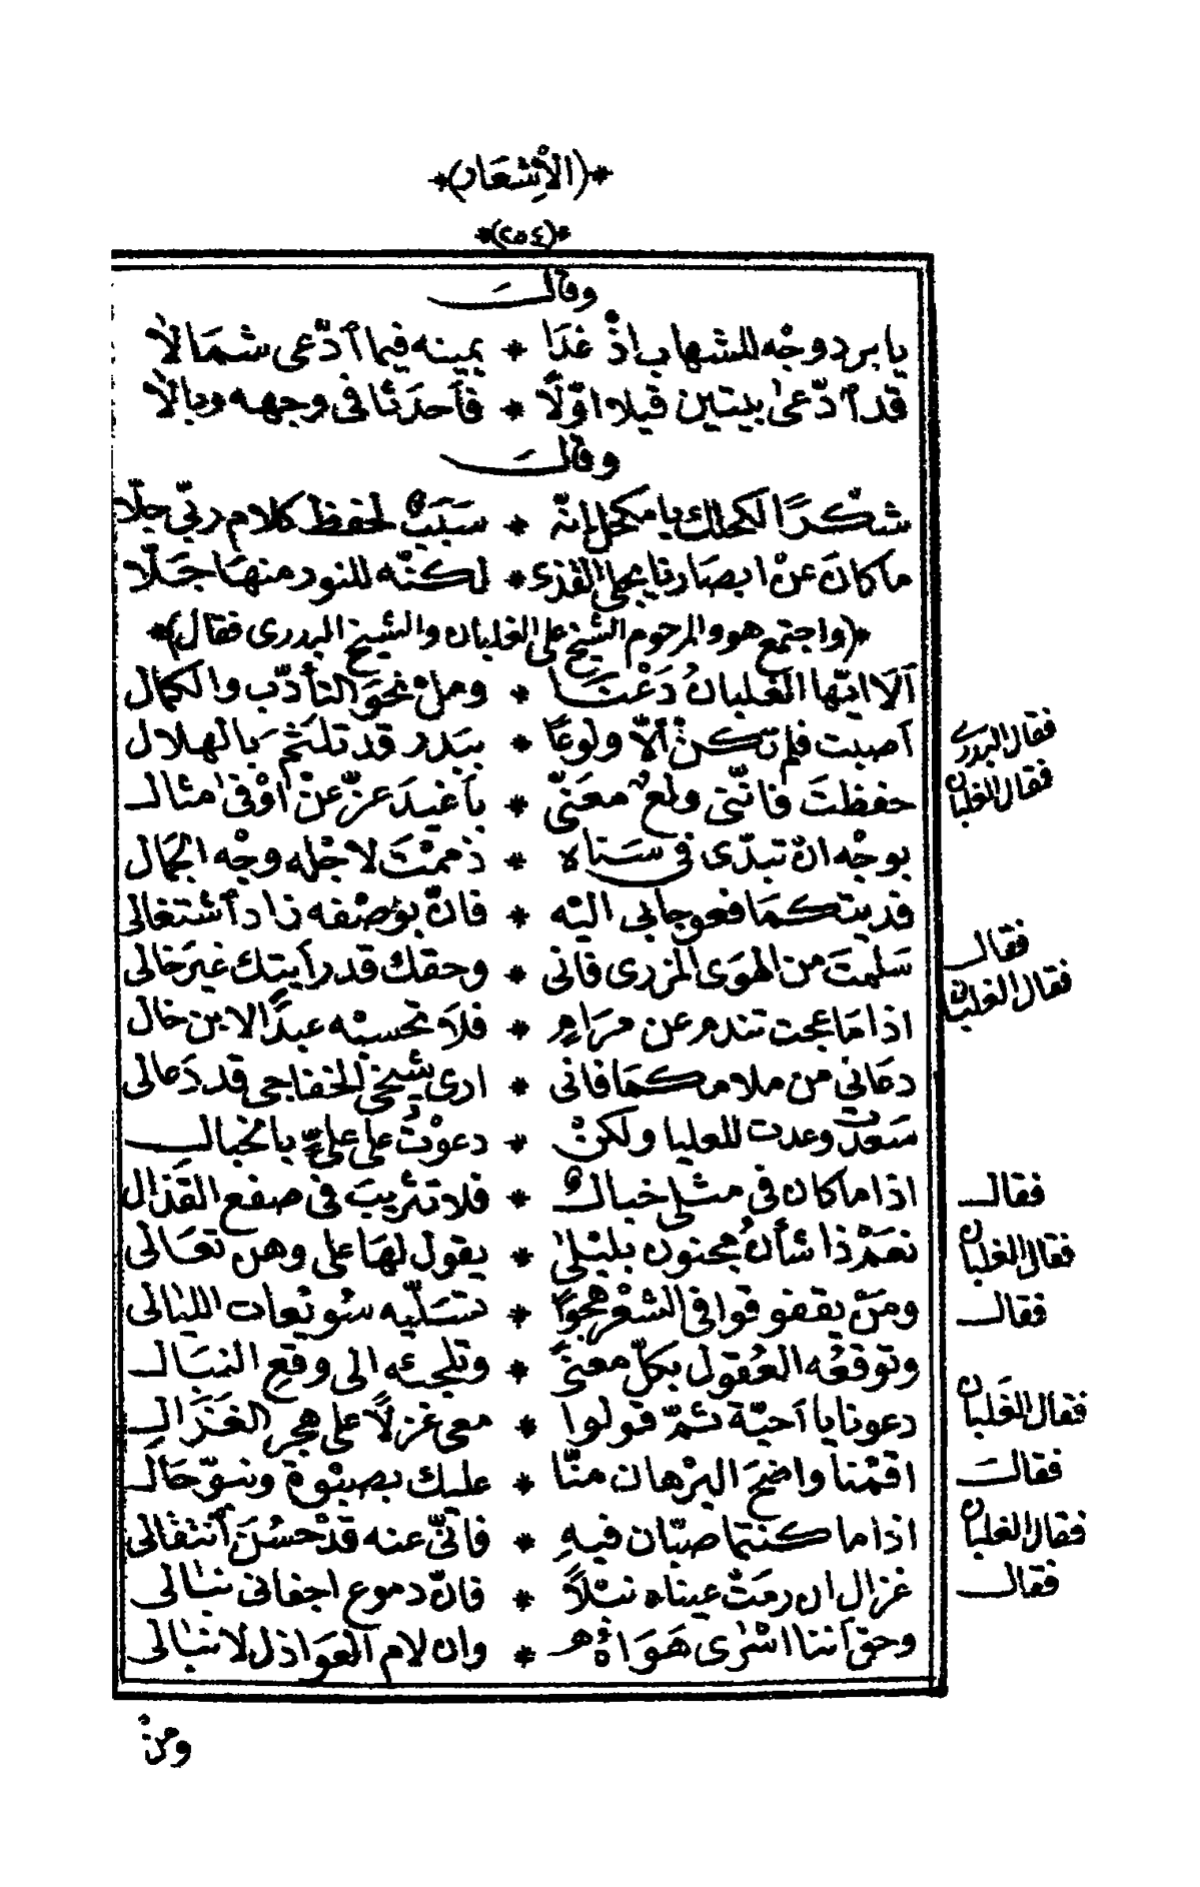 *(الأشعار)*
*(٢٥٤)*
وقال
يا برد وجه للشهاب اذ غدا * يمينه فيما ادّعى شمالا
قد ادّعى بيتين قيلا اوّلا * فأحدثا فى وجهه وبالا
وقال
شكرًا لكحلك يا مكحل انّه * سبب لحفظ كلام ربّي جلّا
ما كان عن ابصارنا يجلى القذى * لكنّه للنور منها جلّا
*(واجتمع هو والمرحوم الشيخ على الغلبان والشيخ البدرى فقال)*
ألا ايّها الغلبان دعنا * ومل نحو التأدّب والكمال
فقال البدرى
أصبت فلم تكن ألّا ولوعًا * ببدر قد تلثّم بالهلال
فقال الغلبان
حفظت فانّنى ولع معنّى * بأغيد عزّ عن اوفى مثال
بوجه ان تبدّى فى سناه * ذممت لاجله وجه الجمال
فديتكما فعوجا بى اليه * فانّ بوصفه زاد اشتغالى
فقال
سلمت من الهوى المزرى فانى * وحقك قد رأيتك غير خالى
فقال الغلبان
اذا ما عجت تندم عن مرام * فلا تحسبه عبدًا لابن خال
دعانى من ملامكما فانى * ارى شيخى الخفاجى قد دعالى
سعدت وعدت للعليا ولكن * دعوت على علىّ بالخبال
فقال
اذا ما كان فى مثلى خبال * فلا تثريب فى صفع القذال
فقال الغلبان
نعم ذا شأن مجنون بليلى * يقول لها على وهن تعالى
فقال
ومن يقفو قوافى الشعر هجوًا * تسلّيه سويعات الليالى
وتوقعه العقول بكلّ معنى * وتلجئه الى وقع النبال
فقال الغلبان
دعونا يا أحبّة ثمّ قولوا * معى غزلًا على هجر الغزال
فقال
اقمنا واضح البرهان منّا * عليك بصبوة ونسوّ حال
فقال الغلبان
اذا ما كنتما صبّان فيه * فانّى عنه قد حسن انتقالى
فقال
غزال ان رمت عيناه نبلًا * فانّ دموع اجفانى نبالى
وحق أننا اسرى هواه * وان لام العواذل لا نبالى
ومن